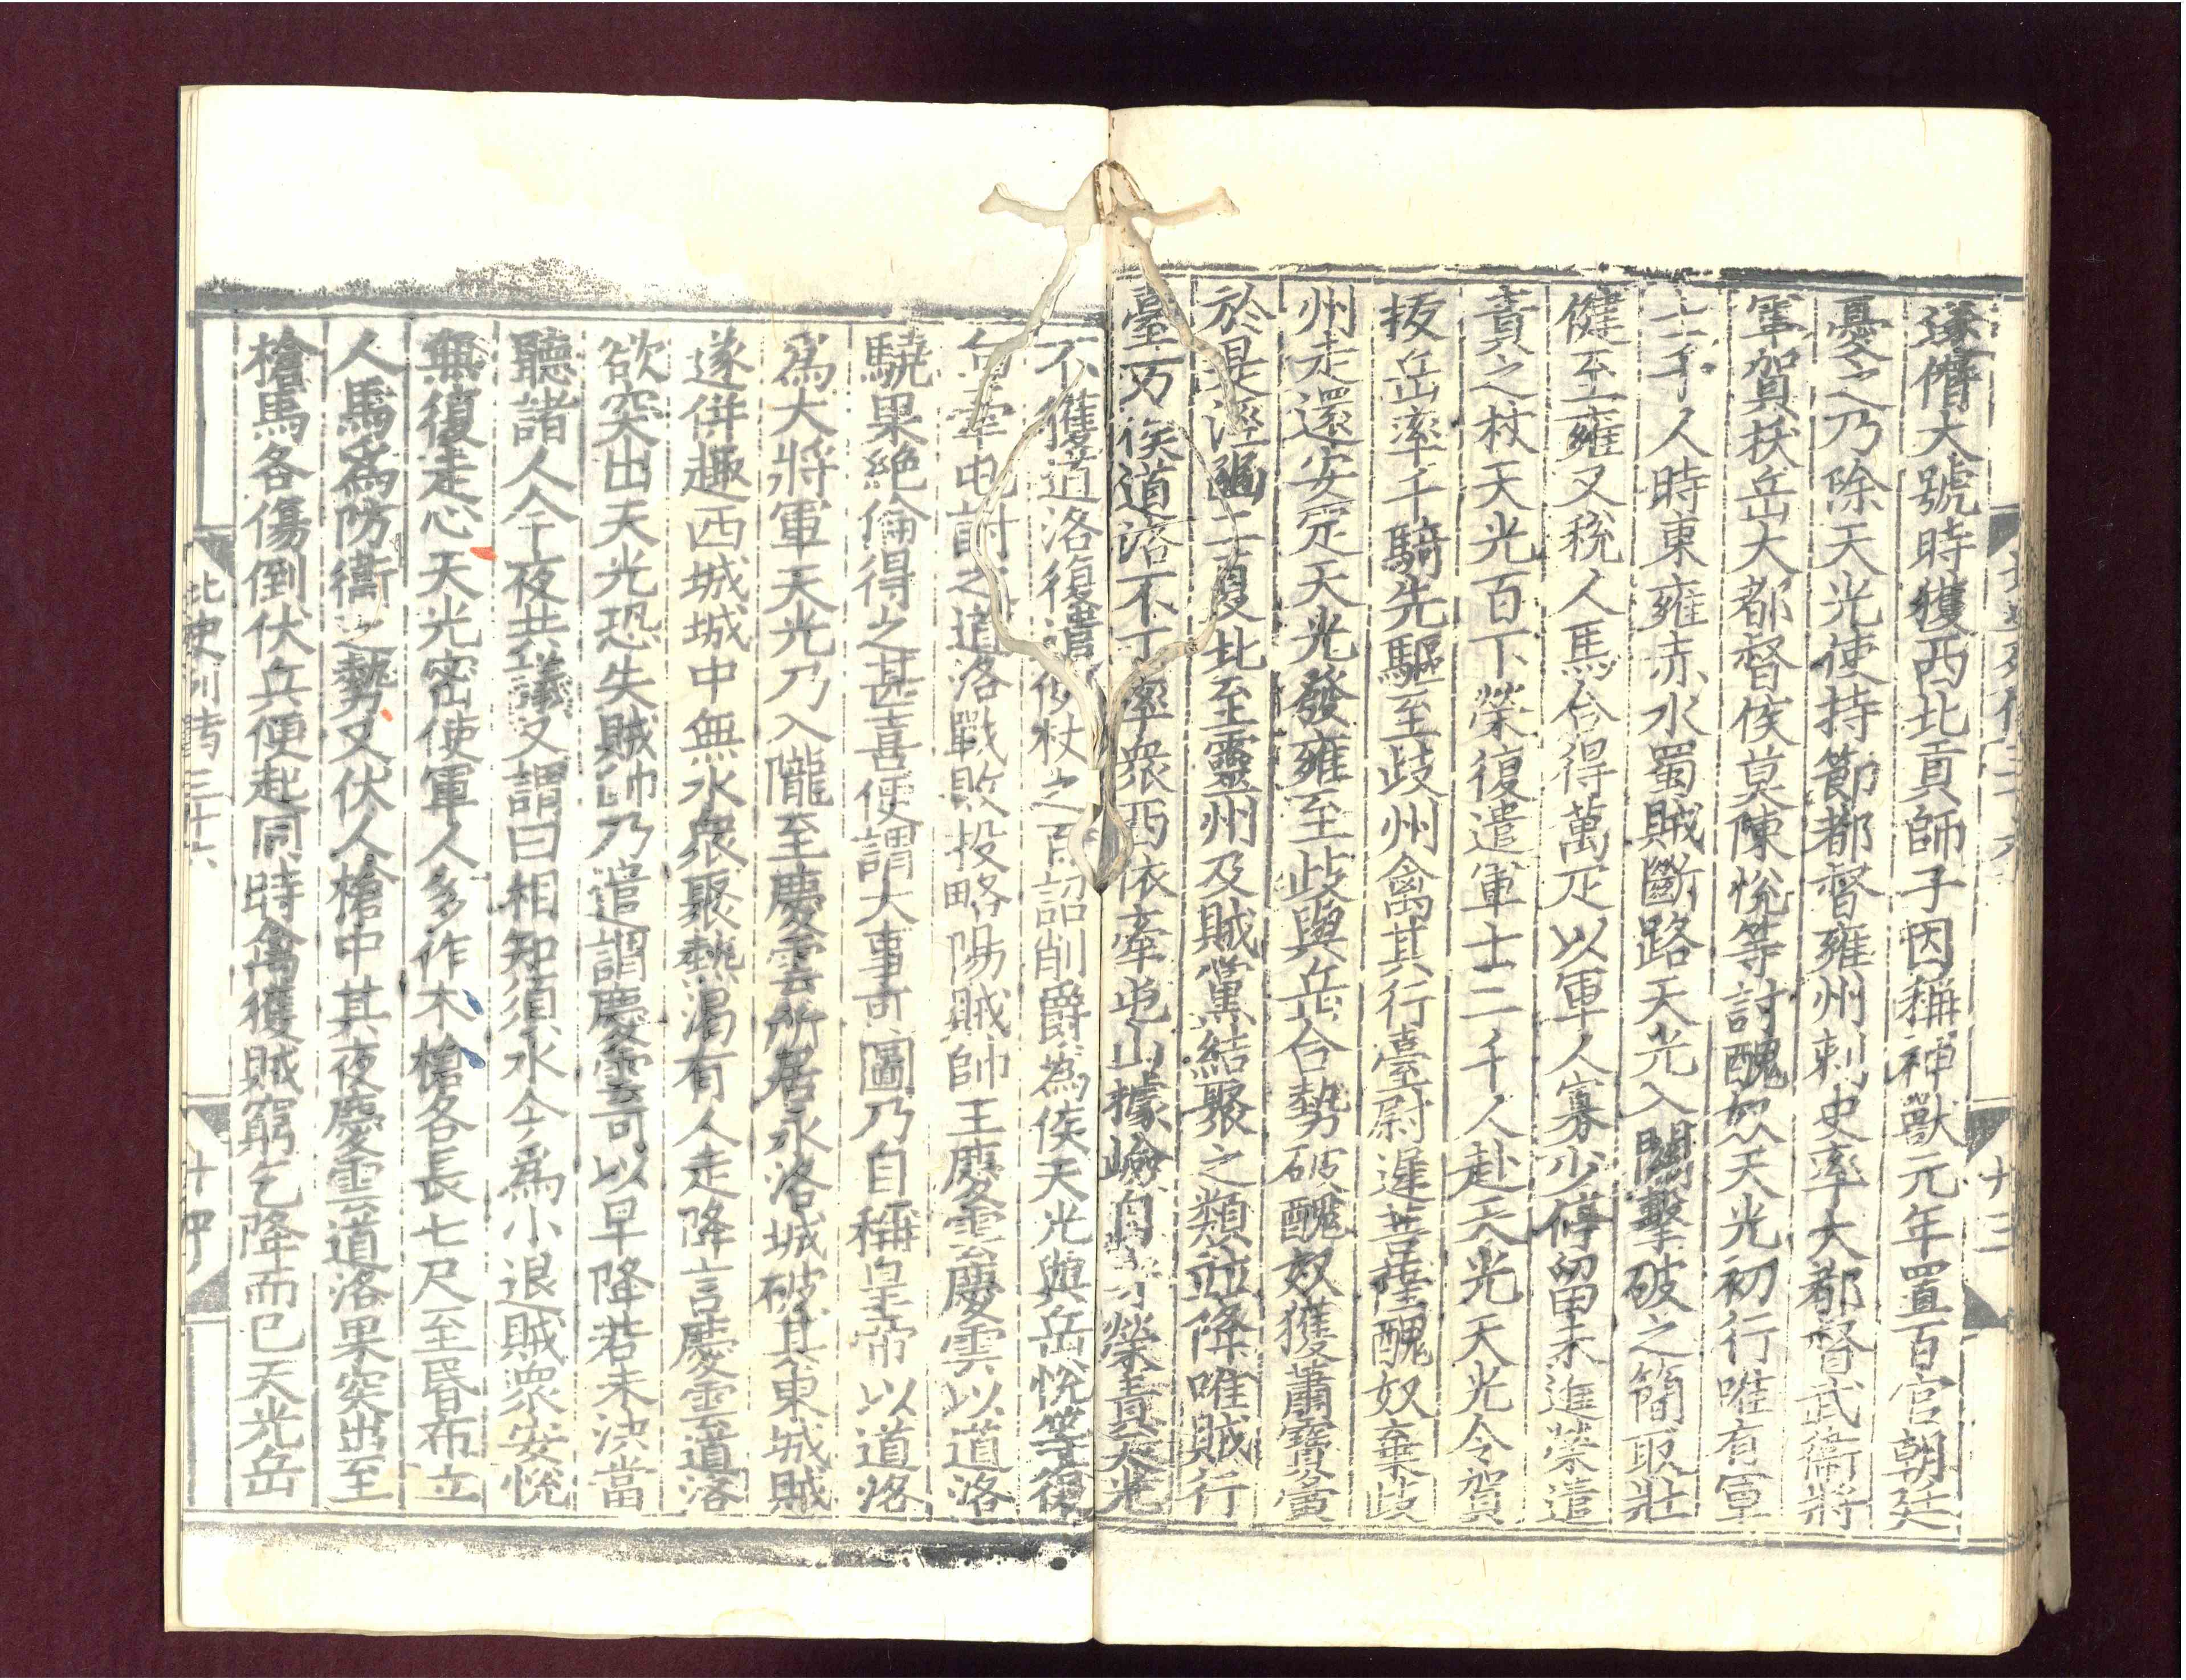 遂僭大號時獲西北貢師子因稱神獸元年置百官朝廷
憂之乃除天光使持節都督雍州刺史率大都督武衛將
軍賀拔岳大都督侯莫陳悅等討醜奴天光初行唯有軍
士千人時東雍赤水蜀賊斷路天光入關擊破之簡取壯
健至雍又稅人馬合得萬疋以軍人寡少停留未進榮遣
責之杖天光百下榮復遣軍士二千人赴天光天光令賀
拔岳率千騎先驅至歧州禽其行臺尉遲菩薩醜奴棄歧
州走還安定天光發雍至歧與岳合勢破醜奴獲蕭寶夤
於是涇豳二夏北至靈州及賊黨結聚之類並降唯賊行
臺万俟道洛不下率衆西依牽屯山據嶮自榮責天光
不獲道洛復遣使杖之百詔削爵為侯天光與岳悅等復
向牽屯討之道洛戰敗投略陽賊帥王慶雲慶雲以道洛
驍果絶倫得之甚喜便謂大事可圖乃自稱皇帝以道洛
爲大將軍天光乃入隴至慶雲所居永洛城破其東城賊
遂併趣西城城中無水衆聚熱渴有人走降言慶雲道洛
欲突出天光恐失賊帥乃遣謂慶雲可以早降若未決當
聽諸人今夜共議又謂曰相知須水今為小退賊衆安悅
無復走心天光密使軍人多作木槍各長七尺至昏布立
人馬爲防衞之勢又伏人槍中其夜慶雲道洛果突出至
槍馬各傷倒伏兵便起同時禽獲賊窮乞降而已天光岳
北史列傳三十六
十四